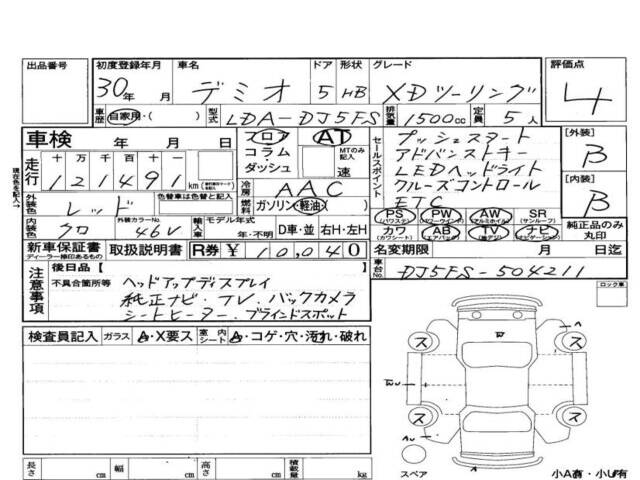 出品番号
初度登録年月 30年 月
車名 デミオ
ドア 5
形状 HB
グレード XDツーリング
評価点 4
車歴 自家用・( )
型式 LDA-DJ5FS
排気量 1500cc
定員 5人
車検 年 月 日
フロア
コラム・
ダッシュ
AT
MTのみ記入
速
セールスポイント
プッシュスタート
アドバンストキー
LEDヘッドライト
クルーズコントロール
ETC
[外装] B
[内装] B
純正品のみ丸印
現在色を記入→
走行 十 万 千 百 十 一
121491 km
冷房 AAC
燃料 ガソリン・軽油・( )
外装色 レッド
色替車は色替と記入
内装色 クロ
外装カラーNo. 46V
輸入車 モデル年式 年・不明
D車・並 右H・左H
PS (パワステ)
PW (パワーウィンド)
AW (アルミホイル)
SR (サンルーフ)
カワ (カワシート)
AB (エアバック)
TV
ナビ (ナビゲーション)
新車保証書
ディーラー捺印あるもの
取扱説明書
R券 ¥ 10,040
名変期限 月 日迄
車台No. DJ5FS-504211
注意事項
後日品 [
不具合箇所等
ヘッドアップディスプレイ
純正ナビ・TV・バックカメラ
シートヒーター・ブラインドスポット
ロック車
検査員記入
ガラス A・X要ス
室内シート A・コゲ・穴・汚れ・破れ
A
W
ス ス
ス ス
スペア
小A有・小U有
長さ cm
幅 cm
高さ cm
積載量 kg